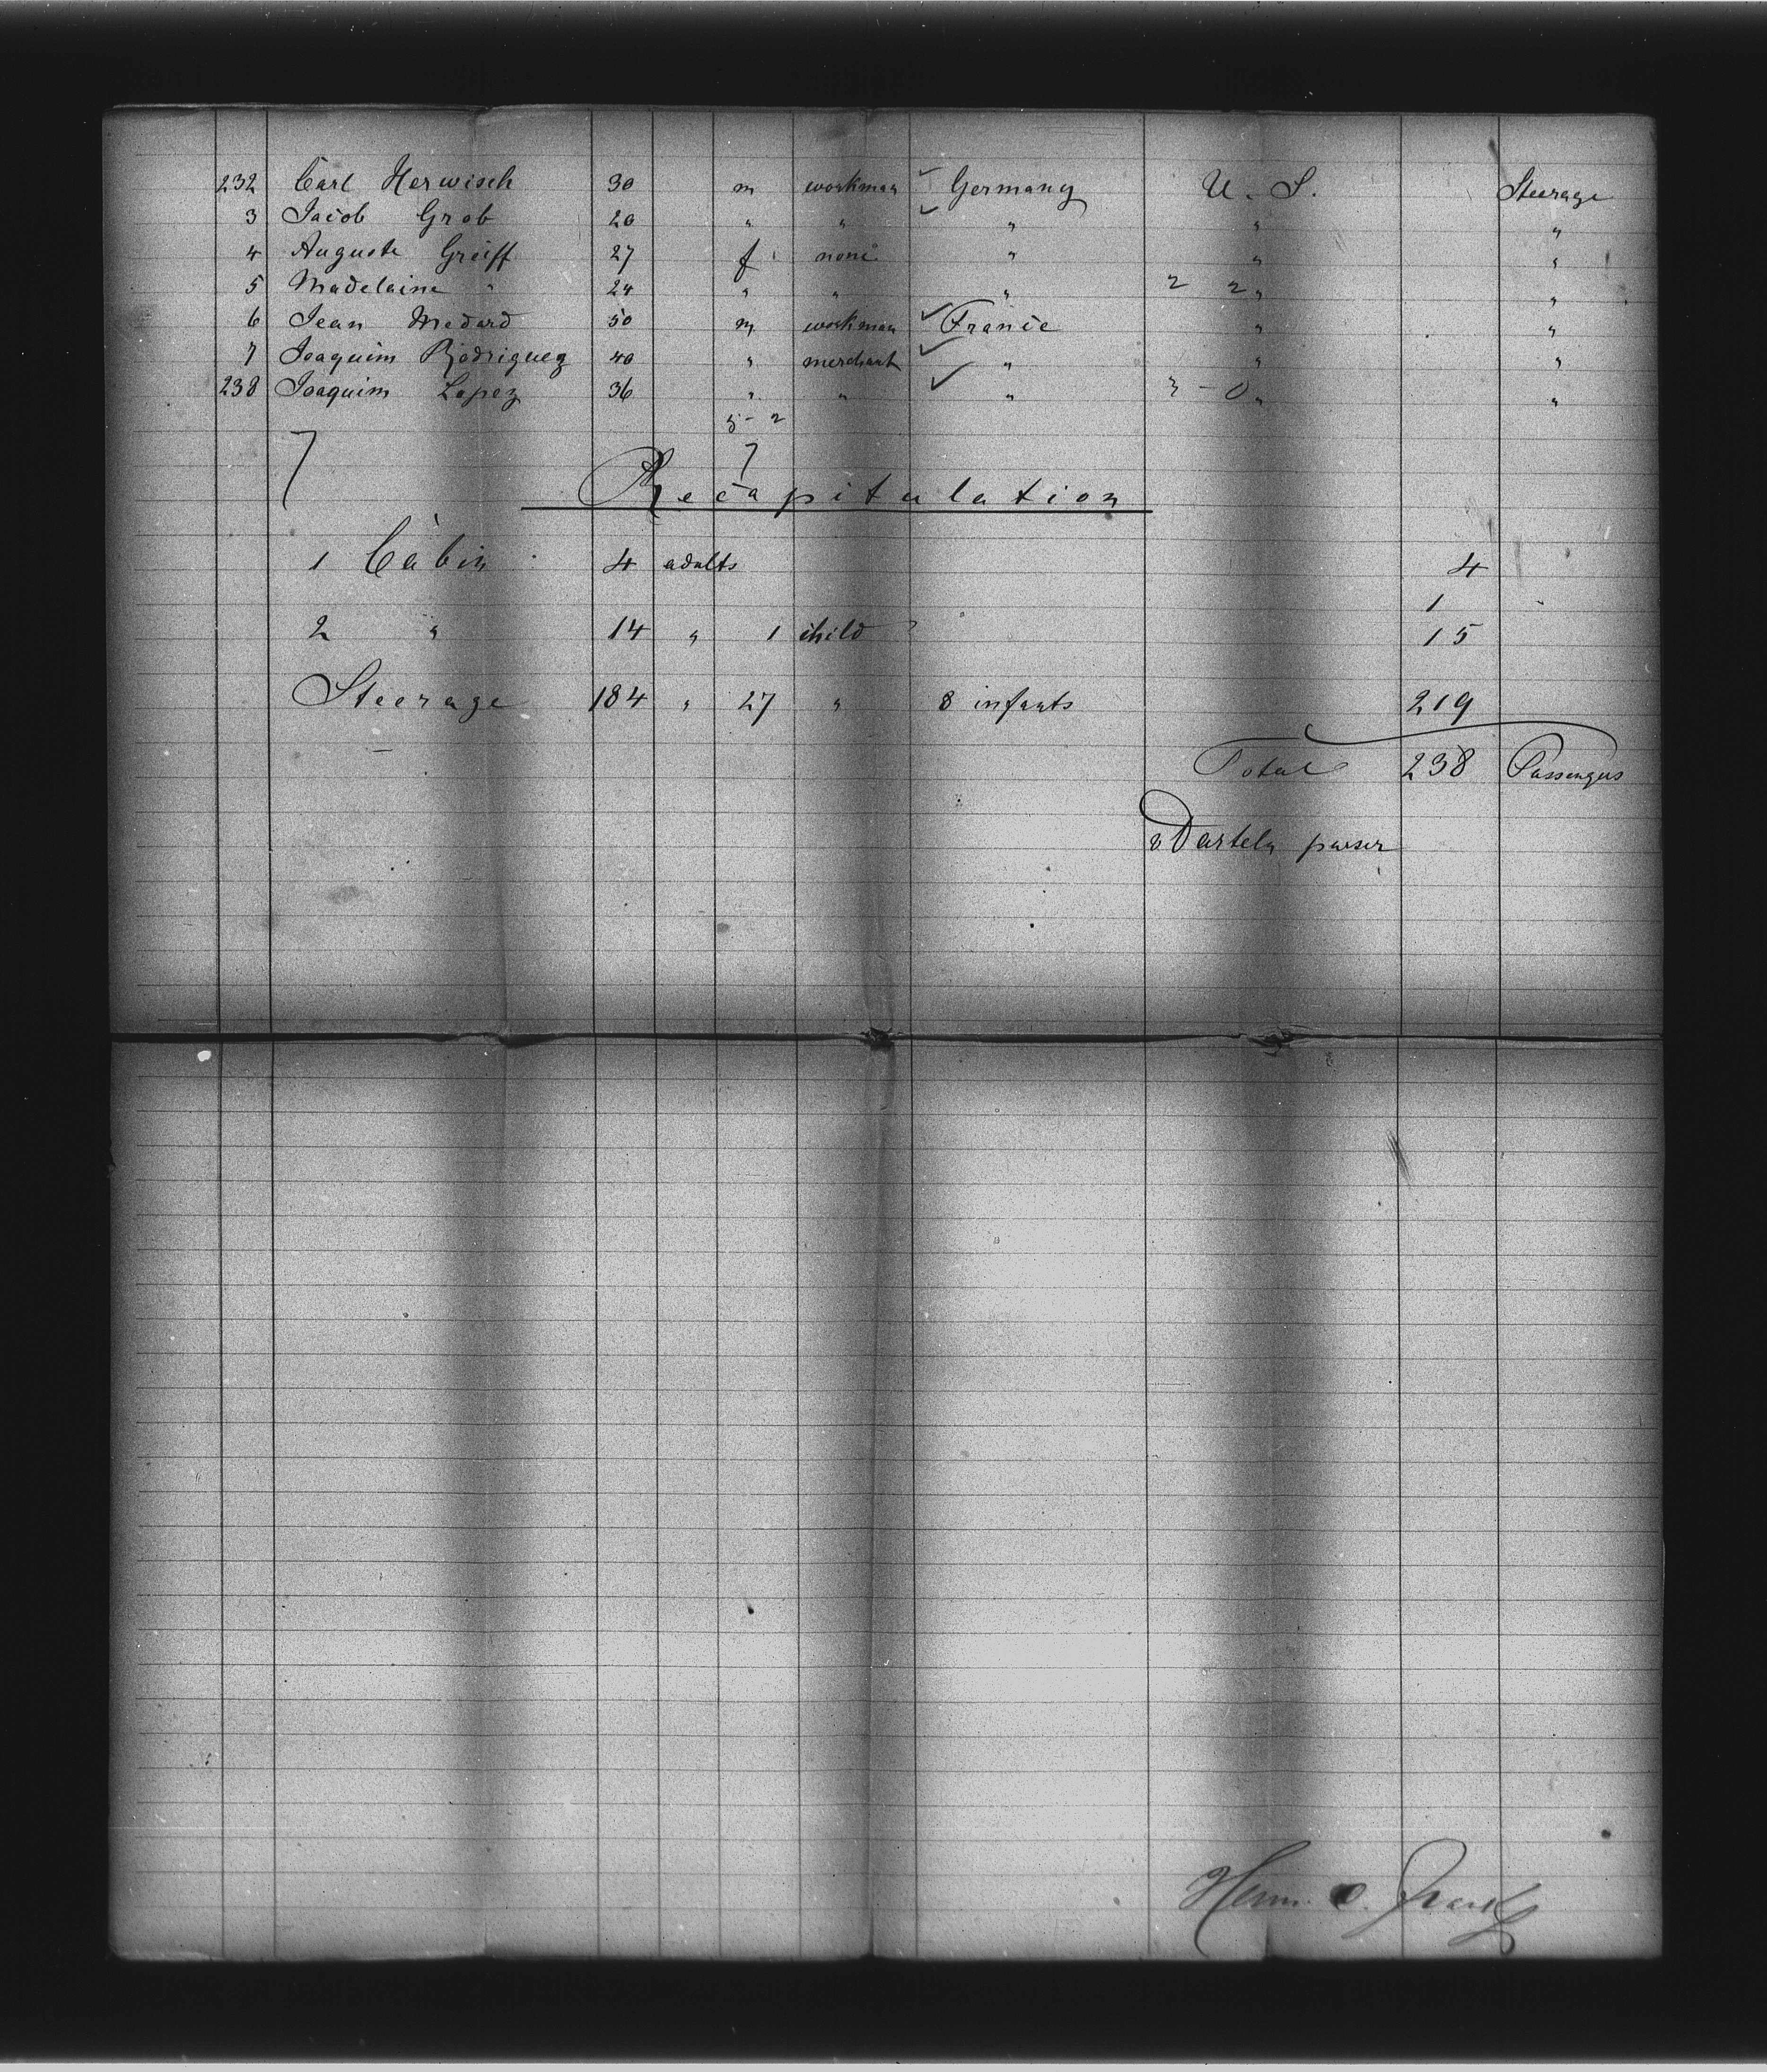 232 Carl Herwisch 30 m workman ✓ Germany U. S. Steerage
3 Jacob Grob 20 " " ✓ " " "
4 Auguste Greiff 27 f none " " "
5 Madelaine " 24 " " " 2 2 " "
6 Jean Medard 50 m workman ✓ France " "
7 Joaquim Rodriguez 40 " merchant ✓ " " "
238 Joaquim Lopez 36 " " ✓ " 3 - 0 " "
5 - 2
7 7
Recapitulation
1 Cabin 4 adults 4
1
2 " 14 " 1 child 15
Steerage 184 " 27 " 8 infants 219
Total 238 Passengers
purser